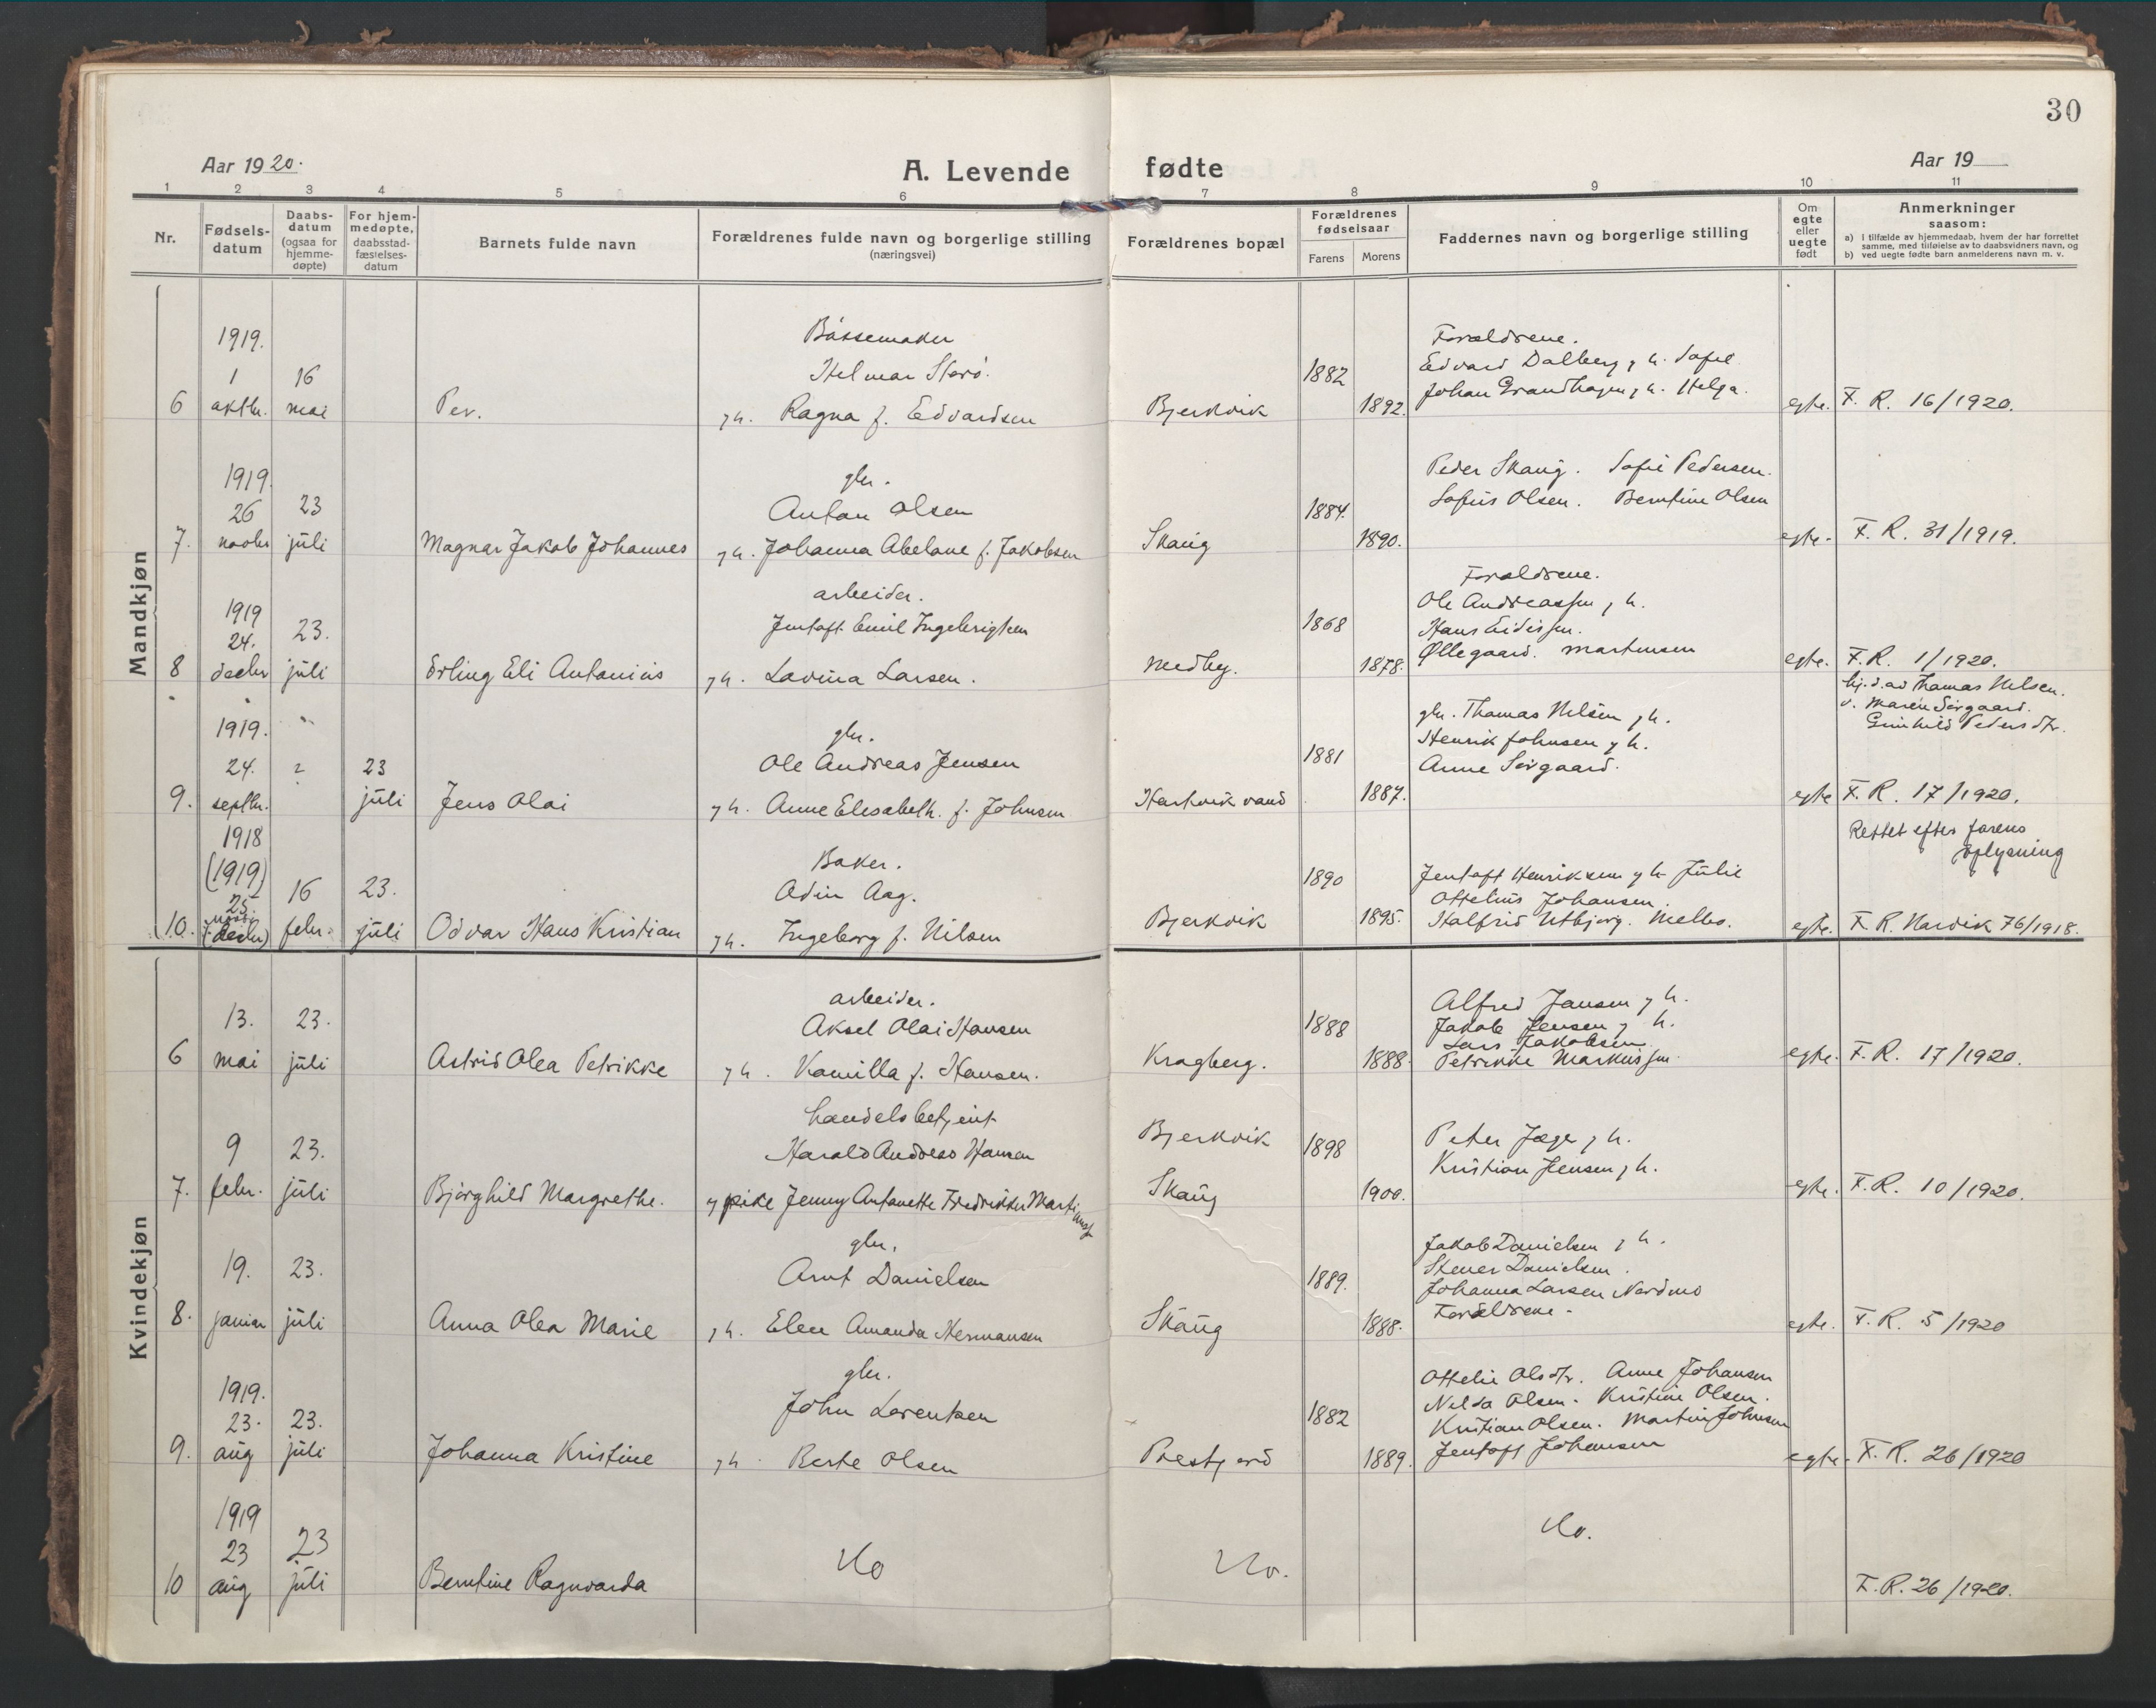 30
Aar 1920.
A. Levende fødte
Aar 19
1 2 3 4 5 6 7 8 9 10 11
Nr.
Fødsels-
datum
Daabs-
datum
(ogsaa for
hjemme-
døpte)
For hjem-
medøpte,
daabsstad-
fæstelses-
datum
Barnets fulde navn
Forældrenes fulde navn og borgerlige stilling
(næringsvei)
Forældrenes bopæl
Forældrenes
fødselsaar
Farens
Morens
Faddernes navn og borgerlige stilling
Om
egte
eller
uegte
født
Anmerkninger
saasom:
a) i tilfælde av hjemmedaab, hvem der har forrettet
samme, med tilføielse av to daabsvidners navn, og
b) ved uegte fødte barn anmelderens navn m. v.
Mandkjøn
6
1919.
1
oktbr.
16
mai
Per.
Bøssemaker
Hilmar Storø.
g h. Ragna f. Edvardsen
Bjerkvik
1882
1892.
Forældrene.
Edvard Dalberg g h. Sofie
Johan Grandhagen g h. Helga.
egte.
F. R. 16/1920.
7.
1919.
26
novbr
23
juli
Magnar Jakob Johannes
gbr.
Anton Olsen
g h. Johanna Abelone f. Jakobsen
Skaug
1884.
1890.
Peder Skaug. Sofie Pedersen.
Sofus Olsen. Berntine Olsen
egte.
F. R. 31/1919.
8
1919
24.
decbr
23.
juli
Erling Eli Antonius
arbeider.
Jentoft Emil Ingebrigtsen
g h. Lovina Larsen.
Medby.
1868
1878.
Forældrene.
Ole Andreassen g h.
Hans Eidissen.
Øllegaard. Martinsen
egte.
F. R. 1/1920.
9.
1919.
24.
septbr.
?
23
juli
Jens Olai
gbr.
Ole Andreas Jensen
g h. Anne Elesabeth. f. Johnsen
Hartvikvand
1881
1887.
gbr. Thomas Nilsen g h.
Henrik Johnsen g h.
Anne Sørgaard.
egte
hj. d. av Thomas Nilsen.
v. Maren Sørgaard.
Gunhild Pedersdtr.
F. R. 17/1920.
10.
1918
(1919)
25.
novbr.
(decbr)
16
febr.
23.
juli
Odvar Hans Kristian
Baker.
Odin Aag.
g h. Ingeborg f. Nilsen
Bjerkvik
1890
1895.
Jentoft Henriksen g h Julie
Ottelius Johansen.
Halfrid Utbjørg. Melbo.
egte.
Rettet efter farens
oplysning
F. R. Narvik 76/1918.
Kvindekjøn
6
13.
mai
23.
juli
Astrid Olea Petrikke
arbeider.
Aksel Olai Hansen
g h. Kamilla f. Hansen.
Kragberg.
1888
1888.
Alfred Jansen g h.
Jakob Jensen g h.
Lars Jakobsen
Petrikke Markussen
egte.
F. R. 17/1920.
7.
9
febr.
23.
juli
Bjørghild Margrethe.
handelsbetjent
Harald Andreas Hansen
g pike Jenny Antonette Fredrikke Martinusf
Bjerkvik
Skaug
1898
1900.
Peter Jæger g h.
Kristian Jensen g h.
egte.
F. R. 10/1920.
8.
19.
januar
23.
juli
Anna Olea Marie
gbr.
Arnt Danielsen
g h. Elen Amanda Hermansen
Skaug
1889.
1888.
Jakob Danielsen g h.
Stener Danielsen.
Johanna Larsen Nordmo
Forældrene.
egte.
F. R. 5/1920
9.
1919.
23.
aug
23.
juli
Johanna Kristine
gbr.
John Lorentsen
g h. Berte Olsen
Prestjord
1882
1889.
Ottelie Olsdtr. Anne Johansen
Nelda Olsen. Kristine Olsen.
Kristian Olsen. Martin Johnsen
Jentoft Johansen
egte.
F. R. 26/1920
10
1919
23
aug
23
juli
Berntine Ragnvarda
Do
Do.
Do.
F. R. 26/1920.